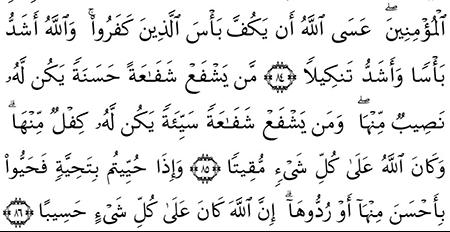 ٱلْمُؤْمِنِينَۖ عَسَى ٱللَّهُ أَن يَكُفَّ بَأْسَ ٱلَّذِينَ كَفَرُوا۟ۚ وَٱللَّهُ أَشَدُّ
بَأْسًا وَأَشَدُّ تَنكِيلًا ۝٨٤ مَّن يَشْفَعْ شَفَـٰعَةً حَسَنَةً يَكُن لَّهُۥ
نَصِيبٌ مِّنْهَاۖ وَمَن يَشْفَعْ شَفَـٰعَةً سَيِّئَةً يَكُن لَّهُۥ كِفْلٌ مِّنْهَاۗ
وَكَانَ ٱللَّهُ عَلَىٰ كُلِّ شَىْءٍ مُّقِيتًا ۝٨٥ وَإِذَا حُيِّيتُم بِتَحِيَّةٍ فَحَيُّوا۟
بِأَحْسَنَ مِنْهَآ أَوْ رُدُّوهَآۗ إِنَّ ٱللَّهَ كَانَ عَلَىٰ كُلِّ شَىْءٍ حَسِيبًا ۝٨٦